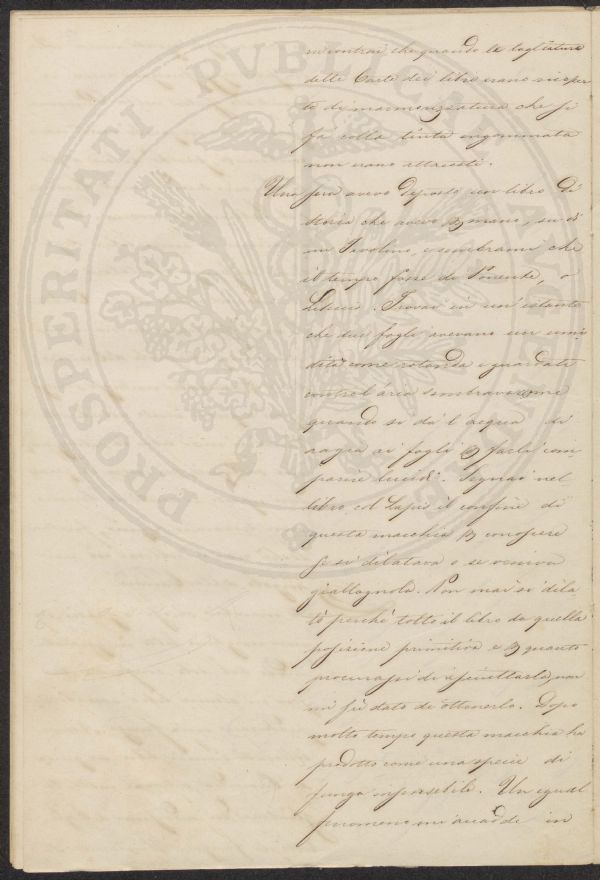 incontrai che quando le tagliature
delle Carte dei libri erano ricoper
te di marmorizzatura che si
fa colla tinta ingommata
non erano attaccati.
Una sera avevo deposto un libro di
storia che avevo p mano, su di
un Tavolino, e sembrami che
il tempo fosse di Ponente, o
Libeccio. Trovai in un istante
che sui fogli avevano un umi
dità come rotonda e guardati
contro l'aria sembrava come
quando si dà l'acqua di
ragia ai fogli p farli com
parire lucidi. Segnai nel
libro col Lapis il confine di
questa macchia p conoscere
se si dilatava o se veniva
giallognola. Non mai si dila
tò perchè tolto il libro da quella
posizione primitiva e p quanto
procurassi di rimetterla, non
mi fù dato di ottenerlo. Dopo
molto tempo questa macchia ha
prodotto come una specie di
fungo impercettibile. Un egual
fenomeno mi accadde in
PROSPERITATI PVBLICAE